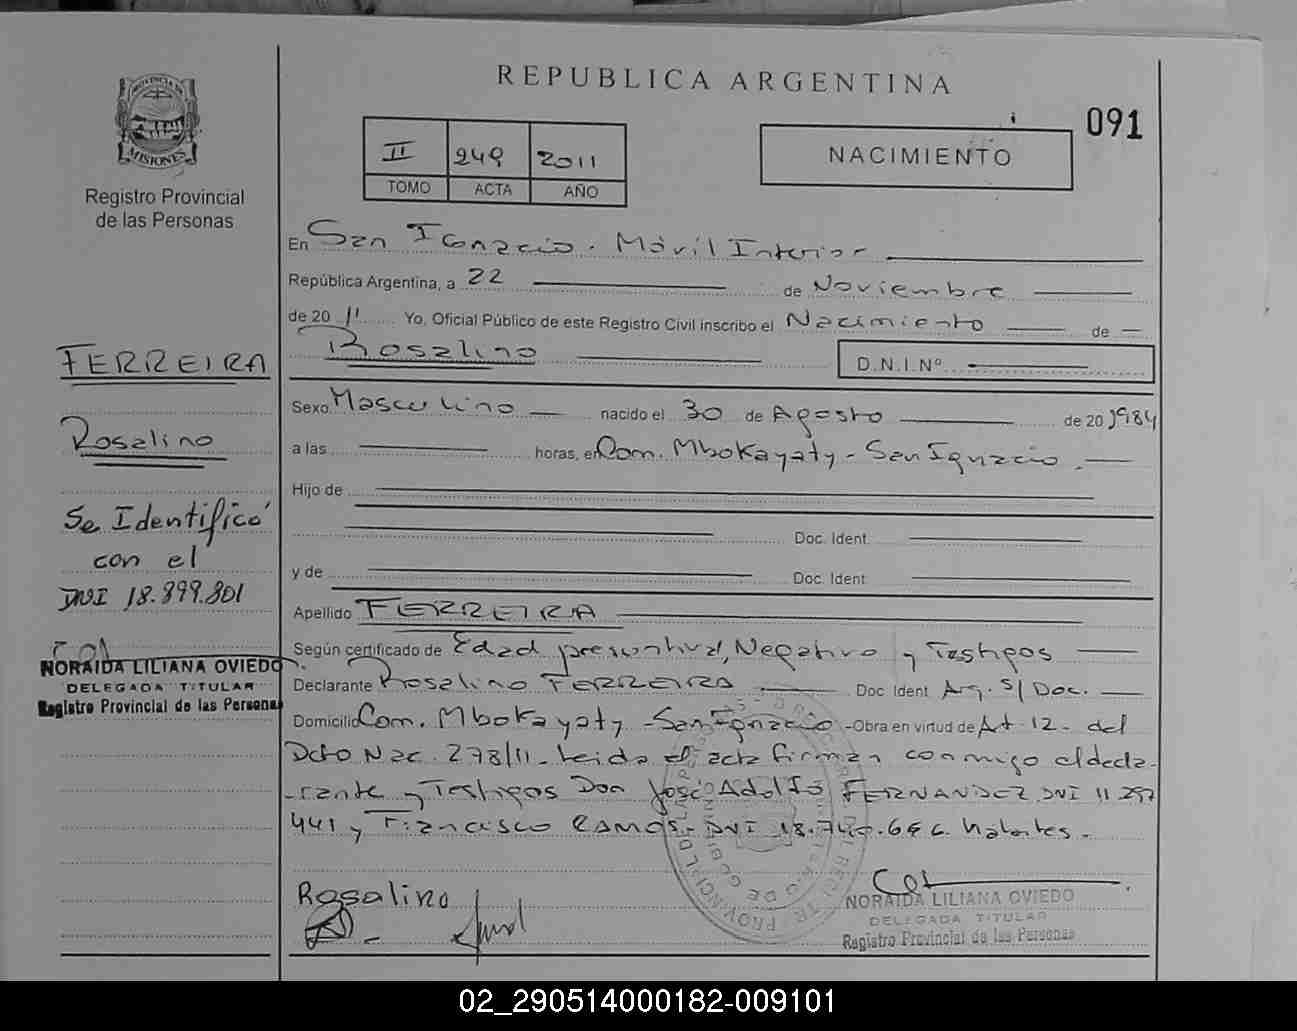 REPUBLICA ARGENTINA
091
PROVINCIA DE
MISIONES
Registro Provincial
de las Personas
II 249 2011
TOMO ACTA AÑO
NACIMIENTO
En San Ignacio. Móvil Interior
República Argentina, a 22 de Noviembre
de 20 11 Yo, Oficial Público de este Registro Civil inscribo el Nacimiento de
Rosalino D.N.I.Nº
FERREIRA
Rosalino
Se Identificó
con el
DNI 18.899.801
NORAIDA LILIANA OVIEDO
DELEGADA TITULAR
Registro Provincial de las Personas
Sexo Masculino nacido el 30 de Agosto de 20 1984
a las horas, en Com. Mbokayaty - San Ignacio.
Hijo de
Doc. Ident.
y de Doc. Ident.
Apellido FERREIRA
Según certificado de Edad presuntiva, Negativo y Testigos
Declarante Rosalino FERREIRA Doc. Ident. Arg. S/Doc.
Domicilio Com. Mbokayaty - San Ignacio - Obra en virtud de Art. 12 - del
Dcto Nac. 278/11. Leida el acta firman conmigo el decla-
rante y Testigos Don José Adolfo FERNANDEZ DNI 11.297
441 y Francisco RAMOS - DNI 18.740.646. hábiles.
Rosalino
NORAIDA LILIANA OVIEDO
DELEGADA TITULAR
Registro Provincial de las Personas
02_290514000182-009101